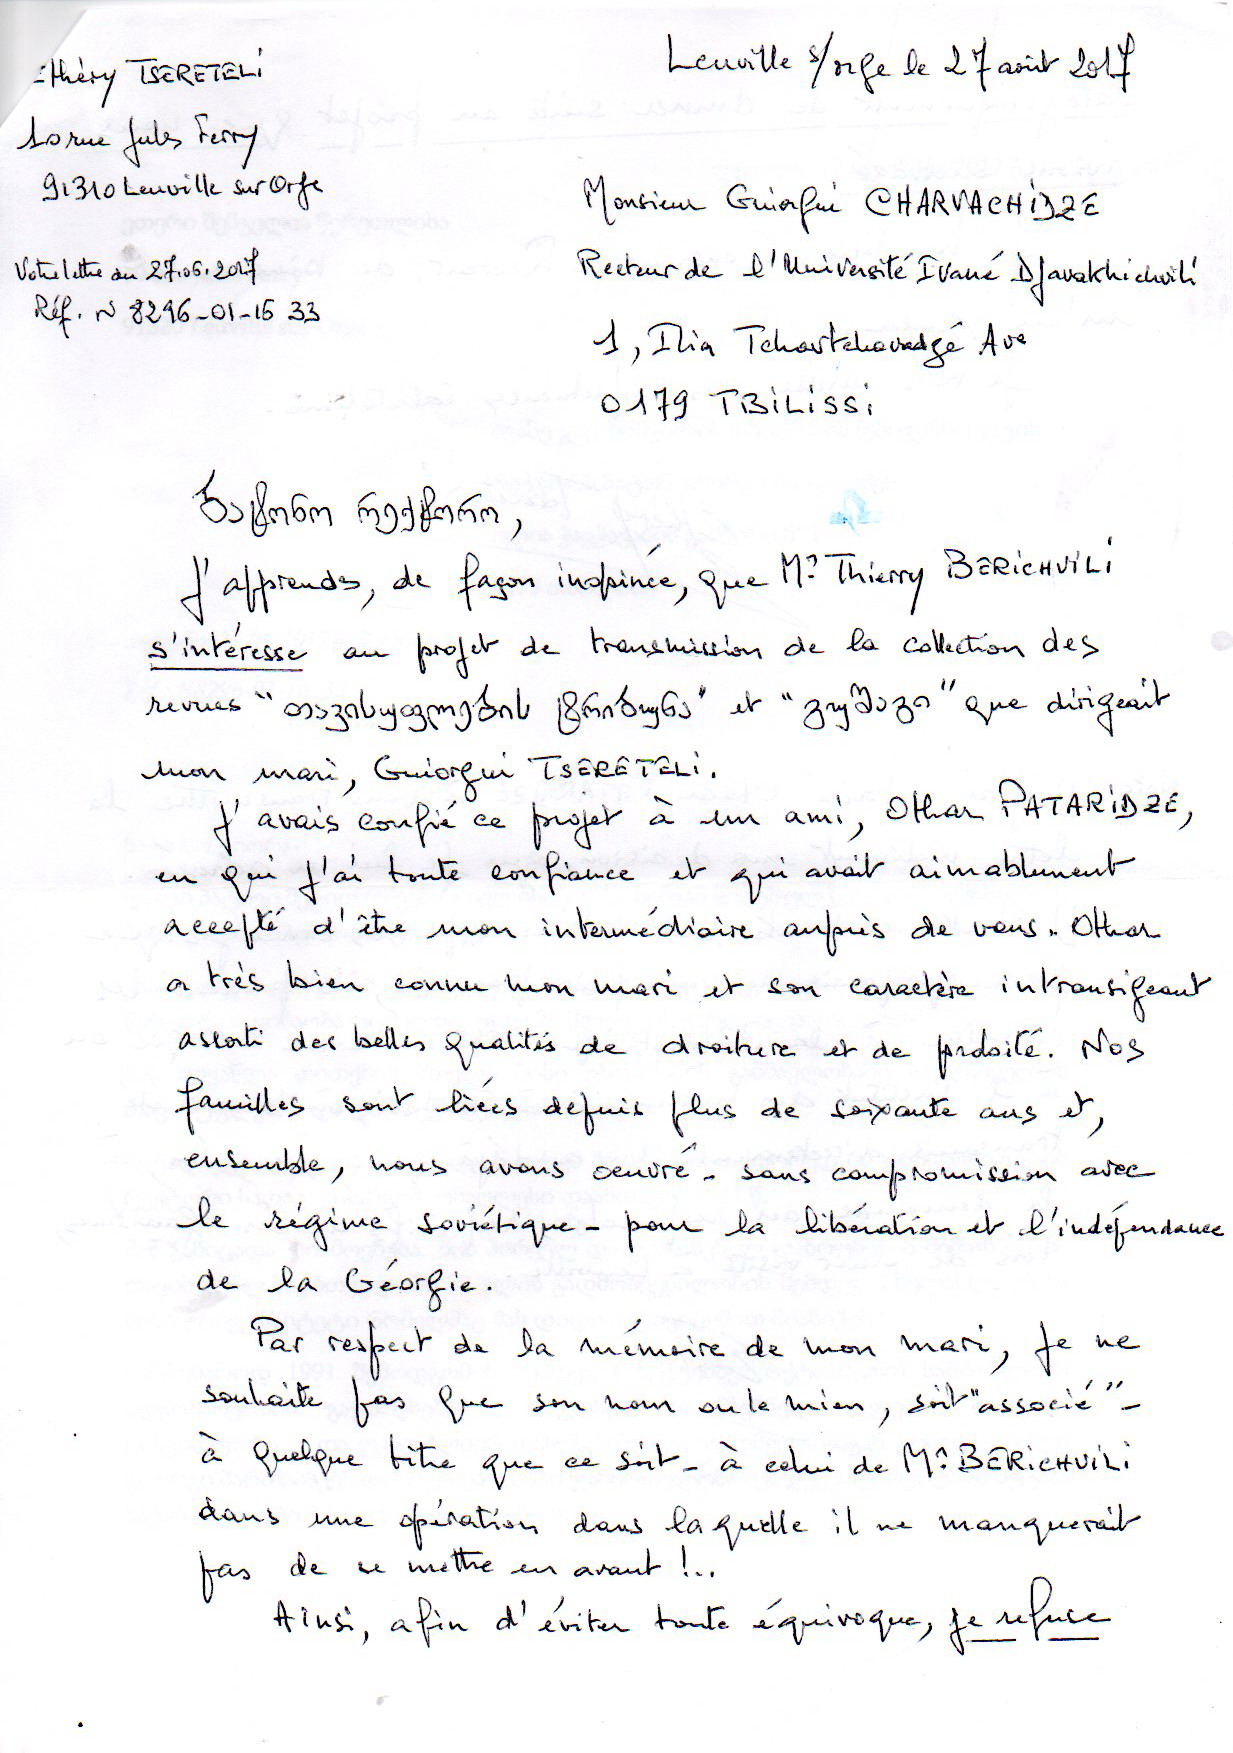 Ethéry TSERETELI
10 rue Jules Ferry
91310 Leuville sur Orge
Votre lettre du 27.06.2017
Réf. N 8296-01-15 33
Leuville s/orge le 27 août 2017
Monsieur Guiorgui CHARVACHIDZE
Recteur de l'Université Ivané Djavakhichvili
1, Ilia Tchavtchavadzé Ave
0179 TBILISSI
ბატონო რექტორო,
J'apprends, de façon inopinée, que Mr Thierry BERICHVILI
s'intéresse au projet de transmission de la collection des
revues "თავისუფლების ტრიბუნა" et "გუშაგი" que dirigeait
mon mari, Guiorgui TSERETELI.
J'avais confié ce projet à un ami, Othar PATARIDZE,
en qui j'ai toute confiance et qui avait aimablement
accepté d'être mon intermédiaire auprès de vous. Othar
a très bien connu mon mari et son caractère intransigeant
assorti des belles qualités de droiture et de probité. Nos
familles sont liées depuis plus de soixante ans et,
ensemble, nous avons oeuvré - sans compromission avec
le régime soviétique - pour la libération et l'indépendance
de la Géorgie.
Par respect de la mémoire de mon mari, je ne
souhaite pas que son nom ou le mien, soit "associé" -
à quelque titre que ce soit - à celui de Mr BERICHVILI
dans une opération dans laquelle il ne manquerait
pas de se mettre en avant !..
Ainsi, afin d'éviter toute équivoque, je refuse